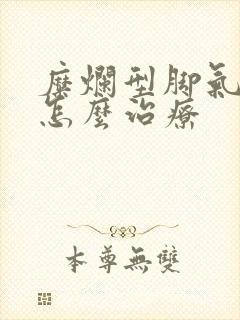 糜爛型脚氣
怎麼治療
本尊無雙